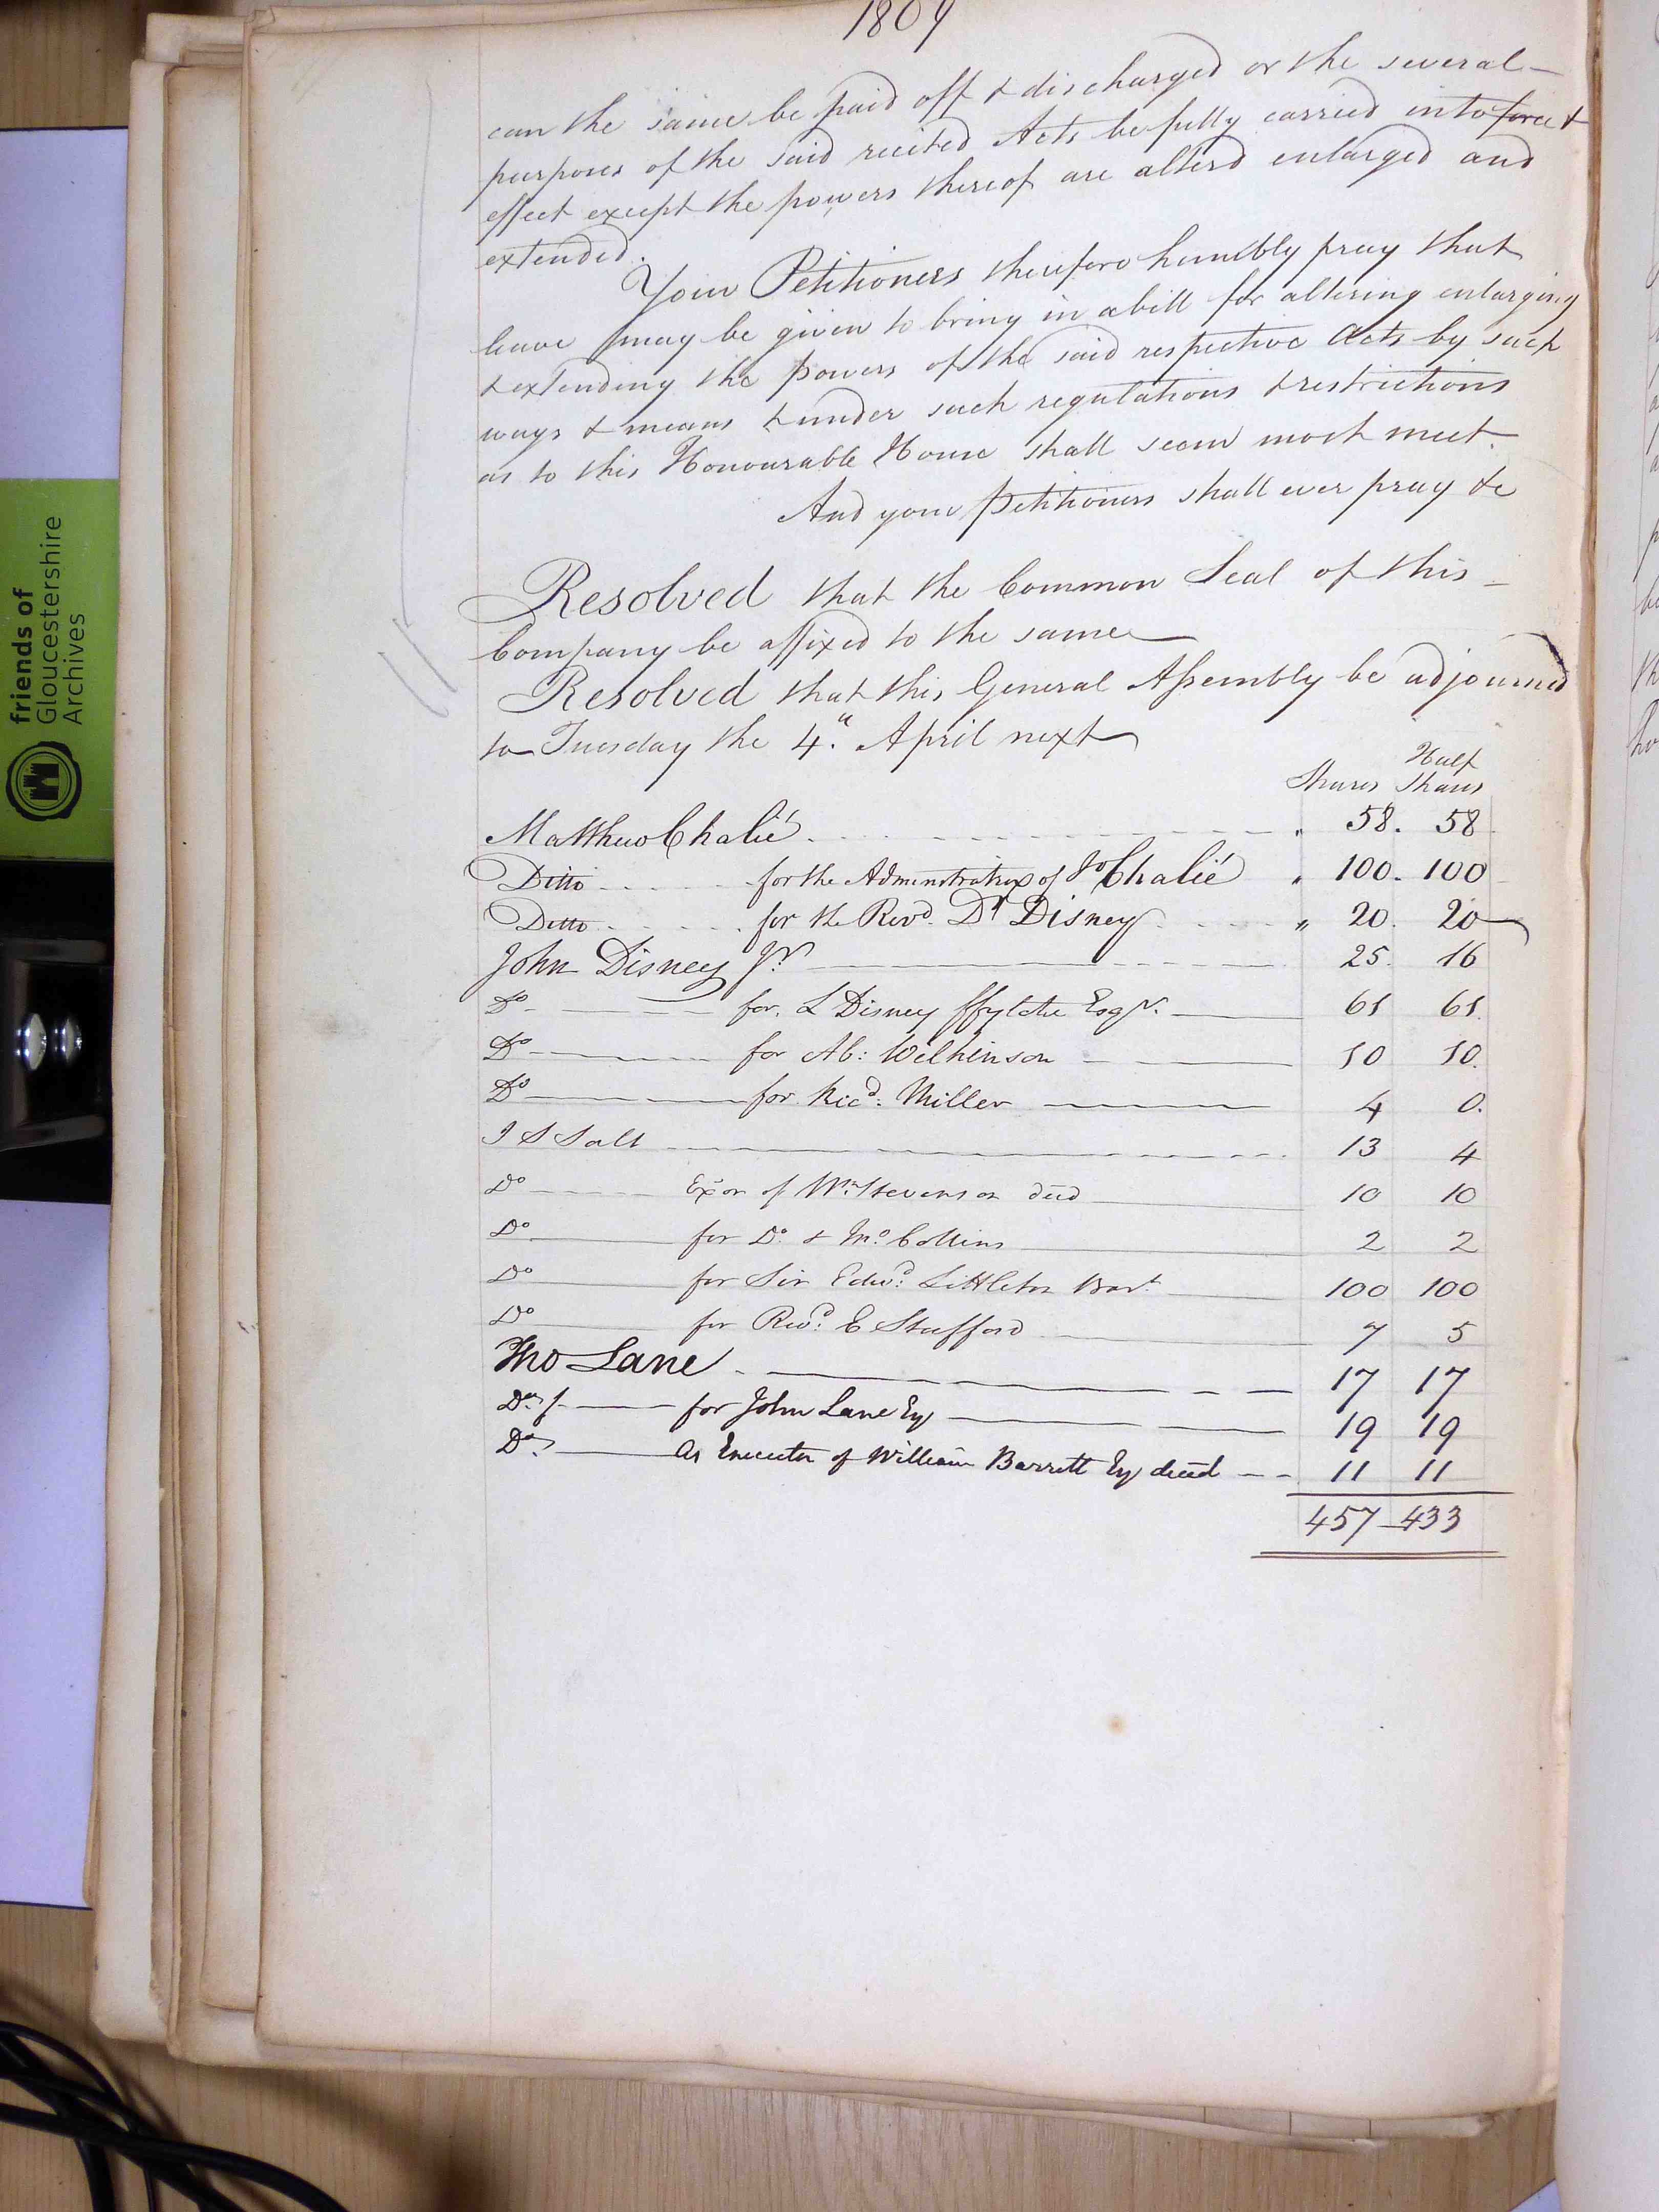 1809
can the same be paid off & discharged or the several
purposes of the said recited Acts be fully carried into force &
effect except the powers thereof are alterd enlarged and
extended.
Your Petitioners therefore humbly pray that
leave may be given to bring in a bill for altering enlarging
& extending the powers of the said respective Acts by such
ways & means & under such regulations & restrictions
as to this Honourable House shall seem most meet.
And your Petitioners shall ever pray &c
Resolved that the Common Seal of this
Company be affixed to the same
Resolved that this General Assembly be adjourned
to Tuesday the 4th April next
Shares Half Shares
Matthew Chalié 58. 58
Ditto for the Administratrix of Jo Chalié 100. 100
Ditto for the Revd. Dr Disney 20. 20
John Disney Jr. 25. 16
Do for L Disney ffytche Esqr. 61 61.
Do for Ab: Wilkinson 10 10.
Do for Ricd: Miller 4 0.
J S Salt 13 4
Do Exor of Wm. Stevenson decd 10 10
Do for Do. & Mo. Collins 2 2
Do for Sir Edwd: Littleton Bart 100 100
Do for Revd: E Stafford 7 5
Tho Lane 17 17
Do for John Lane Esq 19 19
Do As Executor of William Barrett Esq decd 11 11
457 433
friends of
Gloucestershire
Archives